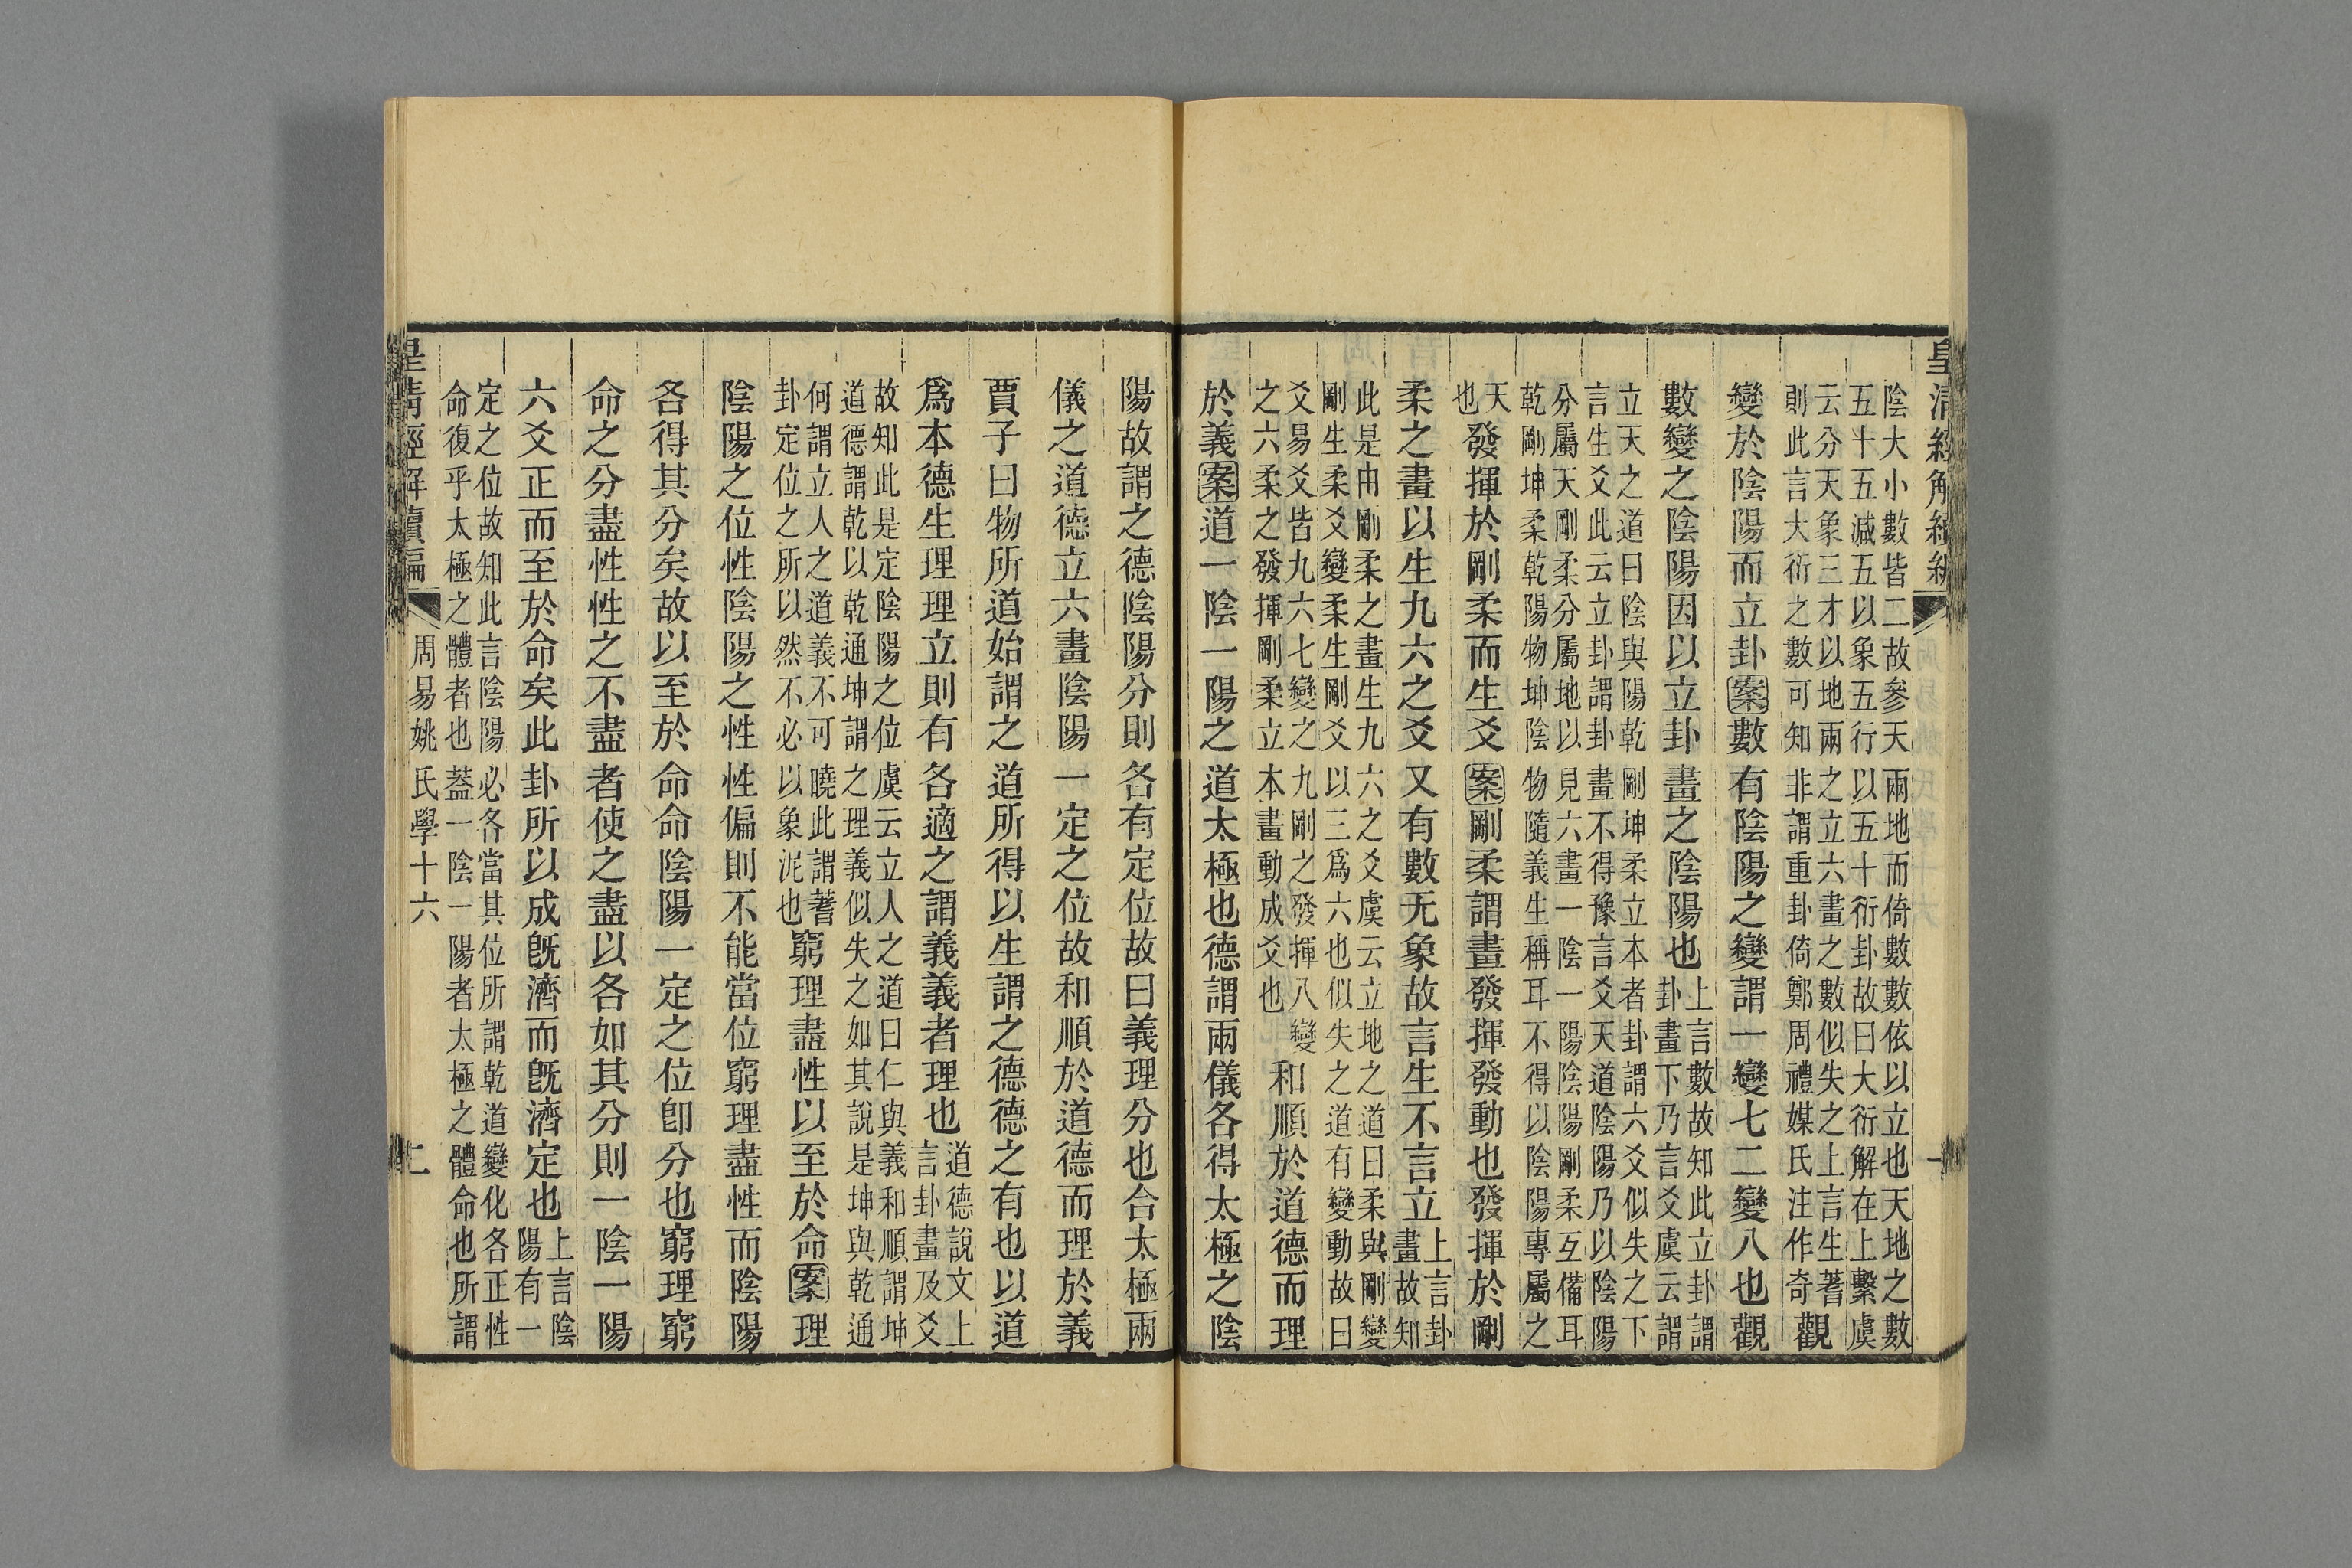 陰大小數皆二故參天兩地而倚數數依以立也天地之數
五十五減五以象五行以五十衍卦故曰大衍解在上繫虞
云分天象三才以地兩之立六畫之數似失之上言生蓍
則此言大衍之數可知非謂重卦倚鄭周禮媒氏注作奇
觀
變於陰陽而立卦案數有陰陽之變謂一變七二變八也觀
數變之陰陽因以立卦畫之陰陽也
上言數故知此立卦謂
卦畫下乃言爻虞云謂
立天之道曰陰與陽乾剛坤柔立本者卦謂六爻似失之下
言生爻此云立卦謂卦畫不得豫言爻天道陰陽乃以陰陽
分屬天剛柔分屬地以見六畫一陰一陽陰陽剛柔互備耳
乾剛坤柔乾陽物坤陰物隨義生稱耳不得以陰陽專屬之
天
也
發揮於剛柔而生爻案剛柔謂畫發揮發動也發揮於剛
柔之畫以生九六之爻又有數无象故言生不言立
上言卦
畫故知
此是由剛柔之畫生九六之爻虞云立地之道曰柔與剛變
剛生柔爻變柔生剛爻以三爲六也似失之道有變動故曰
爻易爻皆九六七變之九剛之發揮八變
之六柔之發揮剛柔立本畫動成爻也
和順於道德而理
於義案道一陰一陽之道太極也德謂兩儀各得太極之陰
陽故謂之德陰陽分則各有定位故曰義理分也合太極兩
儀之道德立六畫陰陽一定之位故和順於道德而理於義
賈子曰物所道始謂之道所得以生謂之德德之有也以道
爲本德生理理立則有各適之謂義義者理也
道德說文上
言卦畫及爻
故知此是定陰陽之位虞云立人之道曰仁與義和順謂坤
道德謂乾以乾通坤謂之理義似失之如其說是坤與乾通
何謂立人之道義不可曉此謂蓍
卦定位之所以然不必以象泥也
窮理盡性以至於命案理
陰陽之位性陰陽之性性偏則不能當位窮理盡性而陰陽
各得其分矣故以至於命命陰陽一定之位卽分也窮理窮
命之分盡性性之不盡者使之盡以各如其分則一陰一陽
六爻正而至於命矣此卦所以成旣濟而旣濟定也
上言陰
陽有一
定之位故知此言陰陽必各當其位所謂乾道變化各正性
命復乎太極之體者也葢一陰一陽者太極之體命也所謂
周易姚氏學十六
二